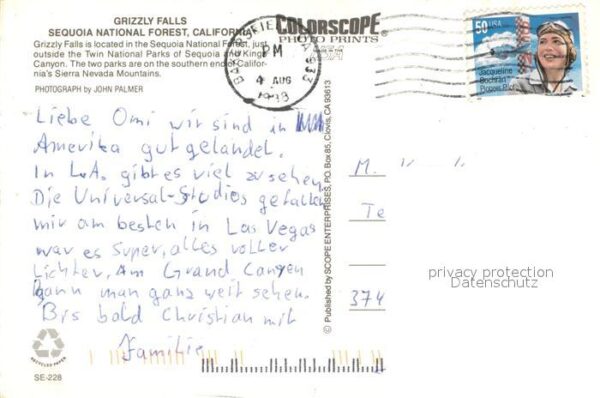 GRIZZLY FALLS
SEQUOIA NATIONAL FOREST, CALIFORNIA
Grizzly Falls is located in the Sequoia National Forest, just
outside the Twin National Parks of Sequoia and Kings
Canyon. The two parks are on the southern end of Califor-
nia's Sierra Nevada Mountains.
PHOTOGRAPH by JOHN PALMER
COLORSCOPE
PHOTO PRINTS
USA
PM
4 AUG
1993
CA 933
50 USA
Jacqueline
Cochran
Pioneer Pilot
Liebe Omi wir sind in
Amerika gut gelandet.
In L.A. gibt es viel zu sehen
Die Universal-Studios gefallen
mir am besten in Las Vegas
war es super, alles voller
Lichter, Am Grand Canyen
kann man ganz weit sehen.
Bis bald Christian mit
Familie
© Published by SCOPE ENTERPRISES, P.O. Box 85, Clovis, CA 93613
M.
Te
374
privacy protection
Datenschutz
RECYCLED PAPER
SE-228